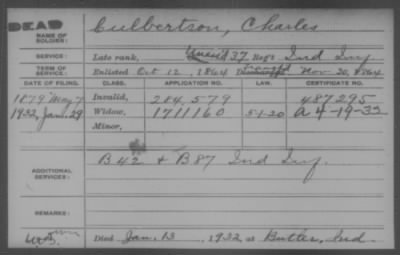 DEAD
NAME OF SOLDIER: Culbertson, Charles
SERVICE: Late rank, Unas'd 37 Reg't Ind Inf
TERM OF SERVICE: Enlisted Oct 12, 1864 Discharged Nov. 30, 1864
DATE OF FILING. CLASS. APPLICATION NO. LAW. CERTIFICATE NO.
1879 May 7 Invalid, 284,579 487295
1932, Jan. 29 Widow, 1711160 5-1-20 A 4-19-32
Minor,
ADDITIONAL SERVICES: B 42 & B 87 Ind Inf.
REMARKS:
Died Jan. 13, 1932, at Butler, Ind